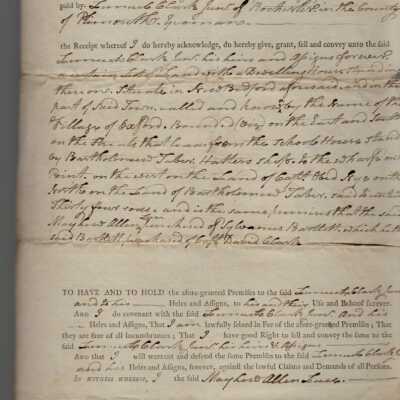 paid by Lemuel Clark Junr of Rochester in the County
of Plimouth Yeoman
the Receipt whereof I do hereby acknowledge, do hereby give, grant, sell and convey unto the said
Lemuel Clark Junr his heirs and Assigns forever
a certain Lot of Land with a Dwelling House standing
thereon Situate in New Bedford aforesaid and in that
part of said Town, called and known by the Name of the
Village of Oxford. Bounded (viz) on the East and South
on the Streets that leads from the School House
by Bartholomew Taber Hatters shop to the wharf on
Point, on the west on the Land of Capt
North on the Land of Bartholomew Taber, said to contain
Thirty four rods, and is the same premises that the said
Mayhew Allen purchased of Sylvanus Bartlett, which he the
said Bartlett purchased of Capt David Clark
TO HAVE AND TO HOLD the afore-granted Premises to the said Lemuel Clark Junr
and to his Heirs and Assigns, to his and their Use and Behoof forever.
And I do covenant with the said Lemuel Clark Junr and his
Heirs and Assigns, That I am lawfully seized in Fee of the afore-granted Premises; That
they are free of all Incumbrances; That I have good Right to sell and convey the same to the
said Lemuel Clark Junr his heirs & Assigns
And that I will warrant and defend the same Premises to the said Lemuel Clark
and his Heirs and Assigns, forever, against the lawful Claims and Demands of all Persons.
In witness whereof, I the said Mayhew Allen